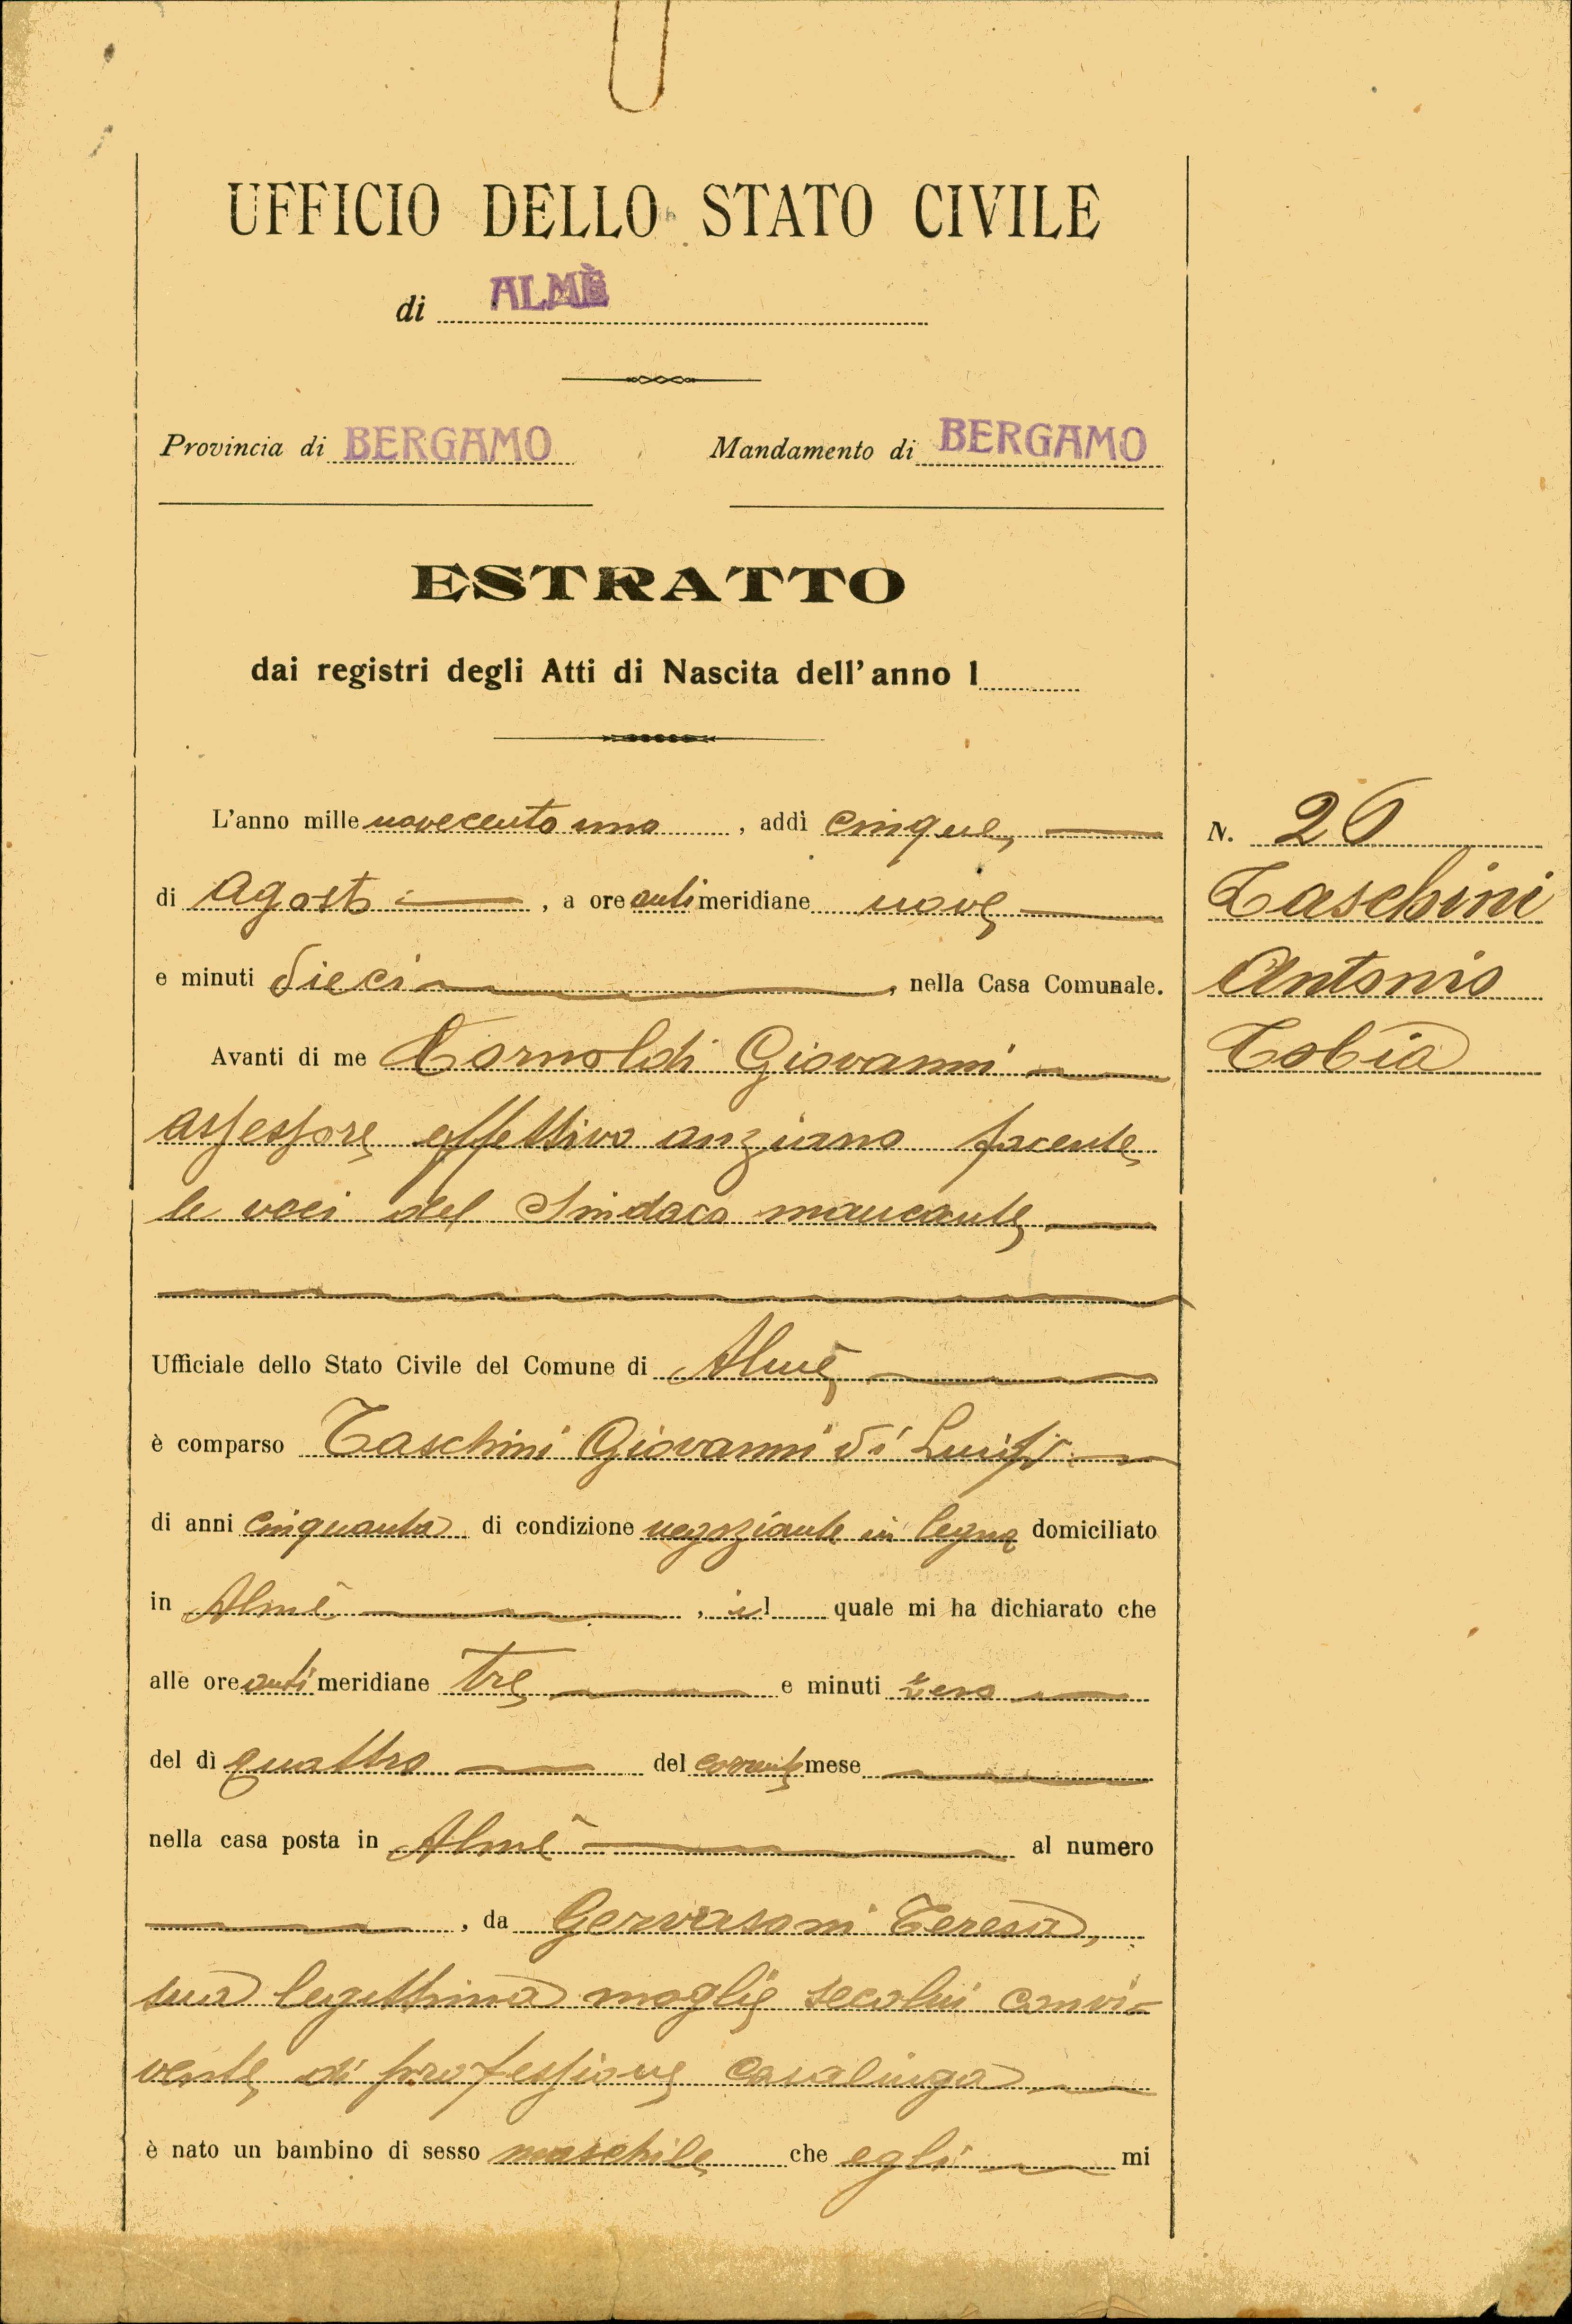 UFFICIO DELLO STATO CIVILE
di ALMÈ
Provincia di BERGAMO Mandamento di BERGAMO
ESTRATTO
dai registri degli Atti di Nascita dell'anno 1
L'anno mille novecento uno, addì cinque
di Agosto, a ore antimeridiane nove
e minuti dieci, nella Casa Comunale.
Avanti di me Cornoldi Giovanni
assessore effettivo anziano facente
le veci del Sindaco mancante
Ufficiale dello Stato Civile del Comune di Almè
è comparso Taschini Giovanni di Luigi
di anni cinquanta di condizione negoziante in legna domiciliato
in Almè, il quale mi ha dichiarato che
alle ore antimeridiane tre e minuti zero
del dì quattro del corrente mese
nella casa posta in Almè al numero
, da Gervasoni Teresa,
sua legittima moglie secolui convi=
vente di professione casalinga
è nato un bambino di sesso maschile che egli mi
N. 26
Taschini
Antonio
Tobia